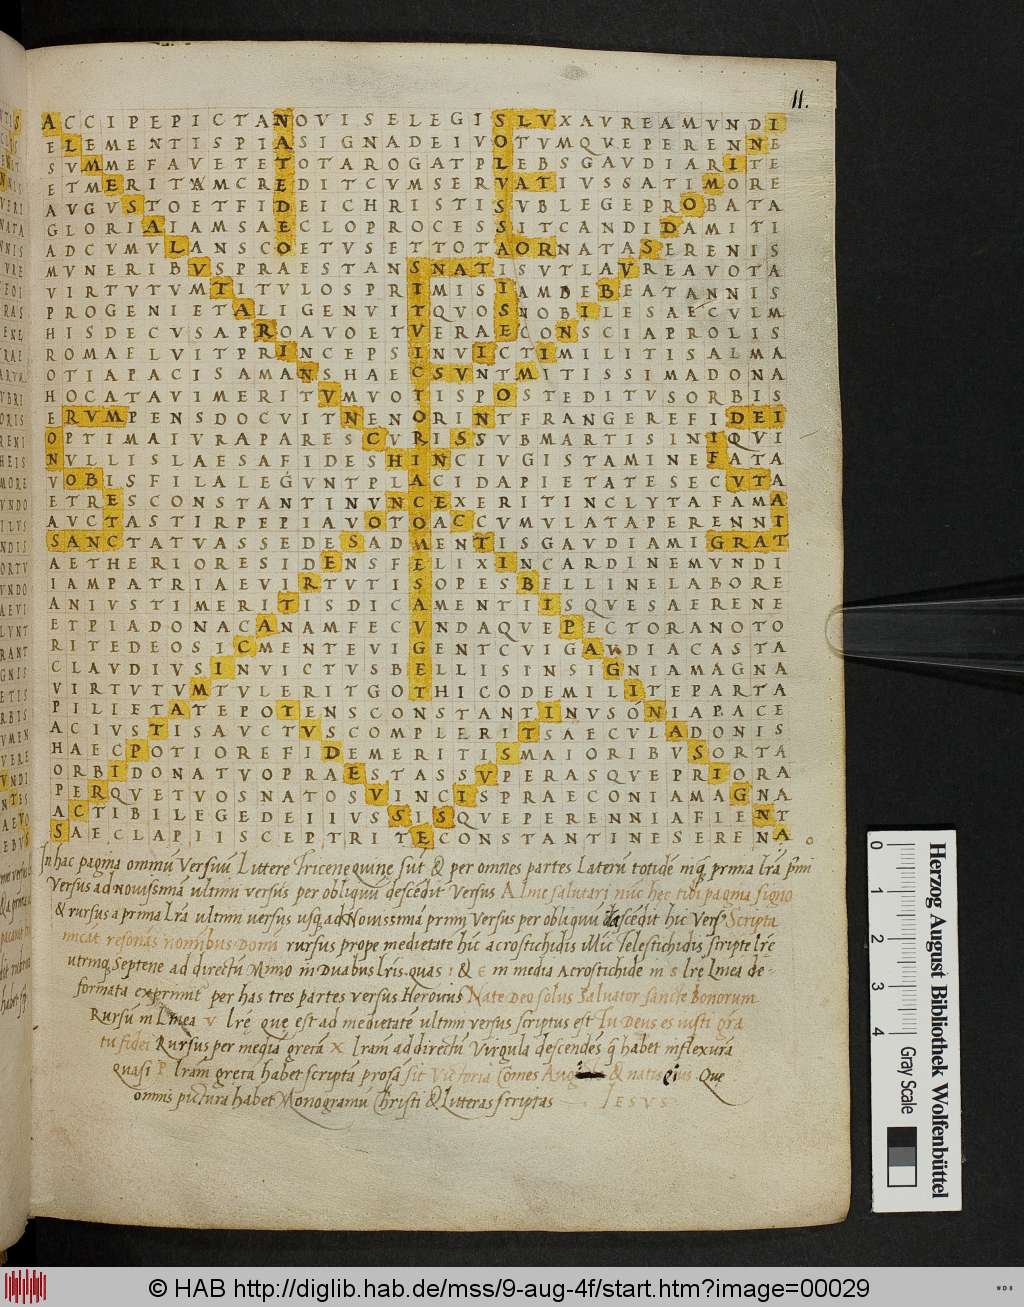 II.
ACCIPEPICTANOVISELEGISLVXAVREAMVNDI
ELEMENTISPIASIGNADEIVOTVMQVEPERENNE
SVMMEFAVETETOTAROGATPLEBSGAVDIARITE
ETMERITAMCREDITCVMSERVATIVSSATIMORE
AVGVSTOETFIDEICHRISTISVBLEGEPROBATA
GLORIAIAMSAECLOPROCESSITCANDIDAMITI
ADCVMVLANSCOETVSETTOTAORNATASERENIS
MVNERIBVSPRAESTANSNATISVTLAVREAVOTA
VIRTVTVMTITVLOSPRIMISIAMDEBEATANNIS
PROGENIETALIGENVITQVOSNOBILESAECVLM
HISDECVSAPROAVOETVERAECONSCIAPROLIS
ROMAELVITPRINCEPSINVICTIMILITISALMA
OTIAPACISAMANSHAECSVNTMITISSIMADONA
HOCATAVIMERITVMVOTISPOSTEDITVSORBIS
ERVMPENSDOCVITNENORINTFRANGEREFIDEI
OPTIMAIVRAPARESCVRISSVBMARTISINIQVI
NVLLISLAESAFIDESHINCIVGISTAMINEFATA
VOBISFILALEGVNTPLACIDAPIETATESECVTA
ETRESCONSTANTINVNCEXERITINCLYTAFAMA
AVCTASTIRPEPIAVOTOACCVMVLATAPERENNI
SANCTATVASSEDESADMENTISGAVDIAMIGRAT
AETHERIORESIDENSFELIXINCARDINEMVNDI
IAMPATRIAEVIRTVTISOPESBELLINELABORE
ANIVSTIMERITISDICAMENTITISQVESAERENE
ETPIADONACANAMFECVNDAQVEPECTORANOTO
RITEDEOSICMENTEVIGENTCVIGAVDIACASTA
CLAVDIVSINVICTVSBELLISINSIGNIAMAGNA
VIRTVTVMTVLERITGOTHICODEMILITEPARTA
PILIETATEPOTENSCONSTANTINVSONIAPACE
ACIVSTISAVCTVSCOMPLERITSAECVLADONIS
HAECPOTIOREFIDEMERITISMAIORIBVSORTA
ORBIDONATVOPRAESTASSVPERASQVEPRIORA
PERQVETVOSNATOSVINCISPRAECONIAMAGNA
ACTIBILEGEDEIIVSSISQVEPERENNIAFIENT
SAECLAPIISCEPTRITECONSTANTINESERENA
In hac pagina omniũ Versuũ Littere Tricene quine sũt & per omnes partes Laterũ totidẽ nĩq prima lrã primi
Versus ad Novissimã ultimi versus per obliquũ descẽdit Versus Alme salutari nũc hec tibi pagina signo
& rursus a prima lrã ultimi versus usq ad Novissimã primi Versus per obliquũ descẽdit hic Vers Scripta
micat resonas nominibus Domini rursus prope medietatẽ hic acrostichidis illic Telestichidis scriptẽ lrẽ
utrinq Septene ad directũ Mimo in Duabus lris quas I & E in media Acrostichide in S lrẽ Linea de-
formata exprimit per has tres partes versus Herovius Nate Deo solus Salvator sancte bonorum
Rursũ in Linea V lrẽ que est ad medietatẽ ultimi versus scriptus est Tu Deus es iusti grã
tu fidei Rursus per media greca X lram ad directũ Virgula descendẽs q habet inflexurã
quasi P lram greca habet scriptã prosa sit Victoria Comes Aug & natis eius Que
omnis pictura habet Monogramũ Christi & Litteras scriptas IESVS
0 1 2 3 4
Gray Scale
Herzog August Bibliothek Wolfenbüttel
© HAB http://diglib.hab.de/mss/9-aug-4f/start.htm?image=00029